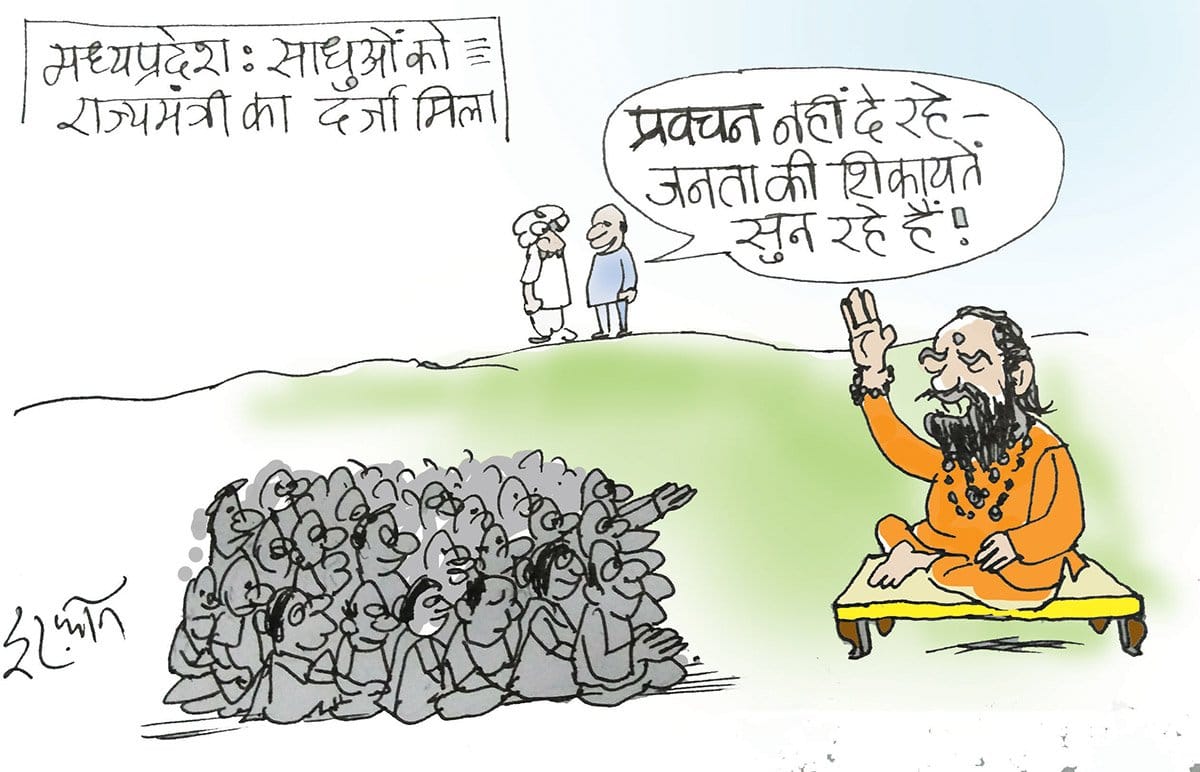 मध्यप्रदेश : साधुओं को
राज्यमंत्री का दर्जा मिला
प्रवचन नहीं दे रहे –
जनता की शिकायतें
सुन रहे हैं !
इरफ़ान